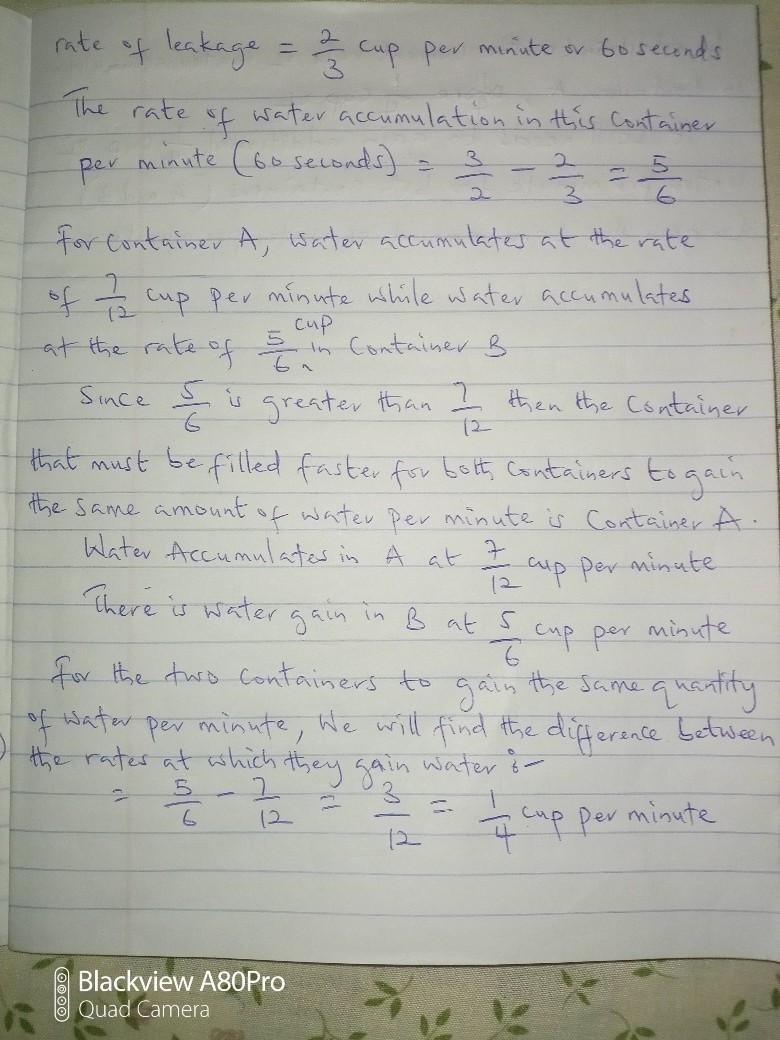 rate of leakage = 2/3 cup per minute or 60 seconds
The rate of water accumulation in this Container
per minute (60 seconds) = 3/2 - 2/3 = 5/6
For Container A, water accumulates at the rate
of 7/12 cup per minute while water accumulates
at the rate of 5/6 cup in Container B
Since 5/6 is greater than 7/12 then the Container
that must be filled faster for both Containers to gain
the same amount of water per minute is Container A.
Water Accumulates in A at 7/12 cup per minute
There is water gain in B at 5/6 cup per minute
For the two Containers to gain the same quantity
of water per minute, We will find the difference between
the rates at which they gain water :-
= 5/6 - 7/12 = 3/12 = 1/4 cup per minute
Blackview A80Pro
Quad Camera